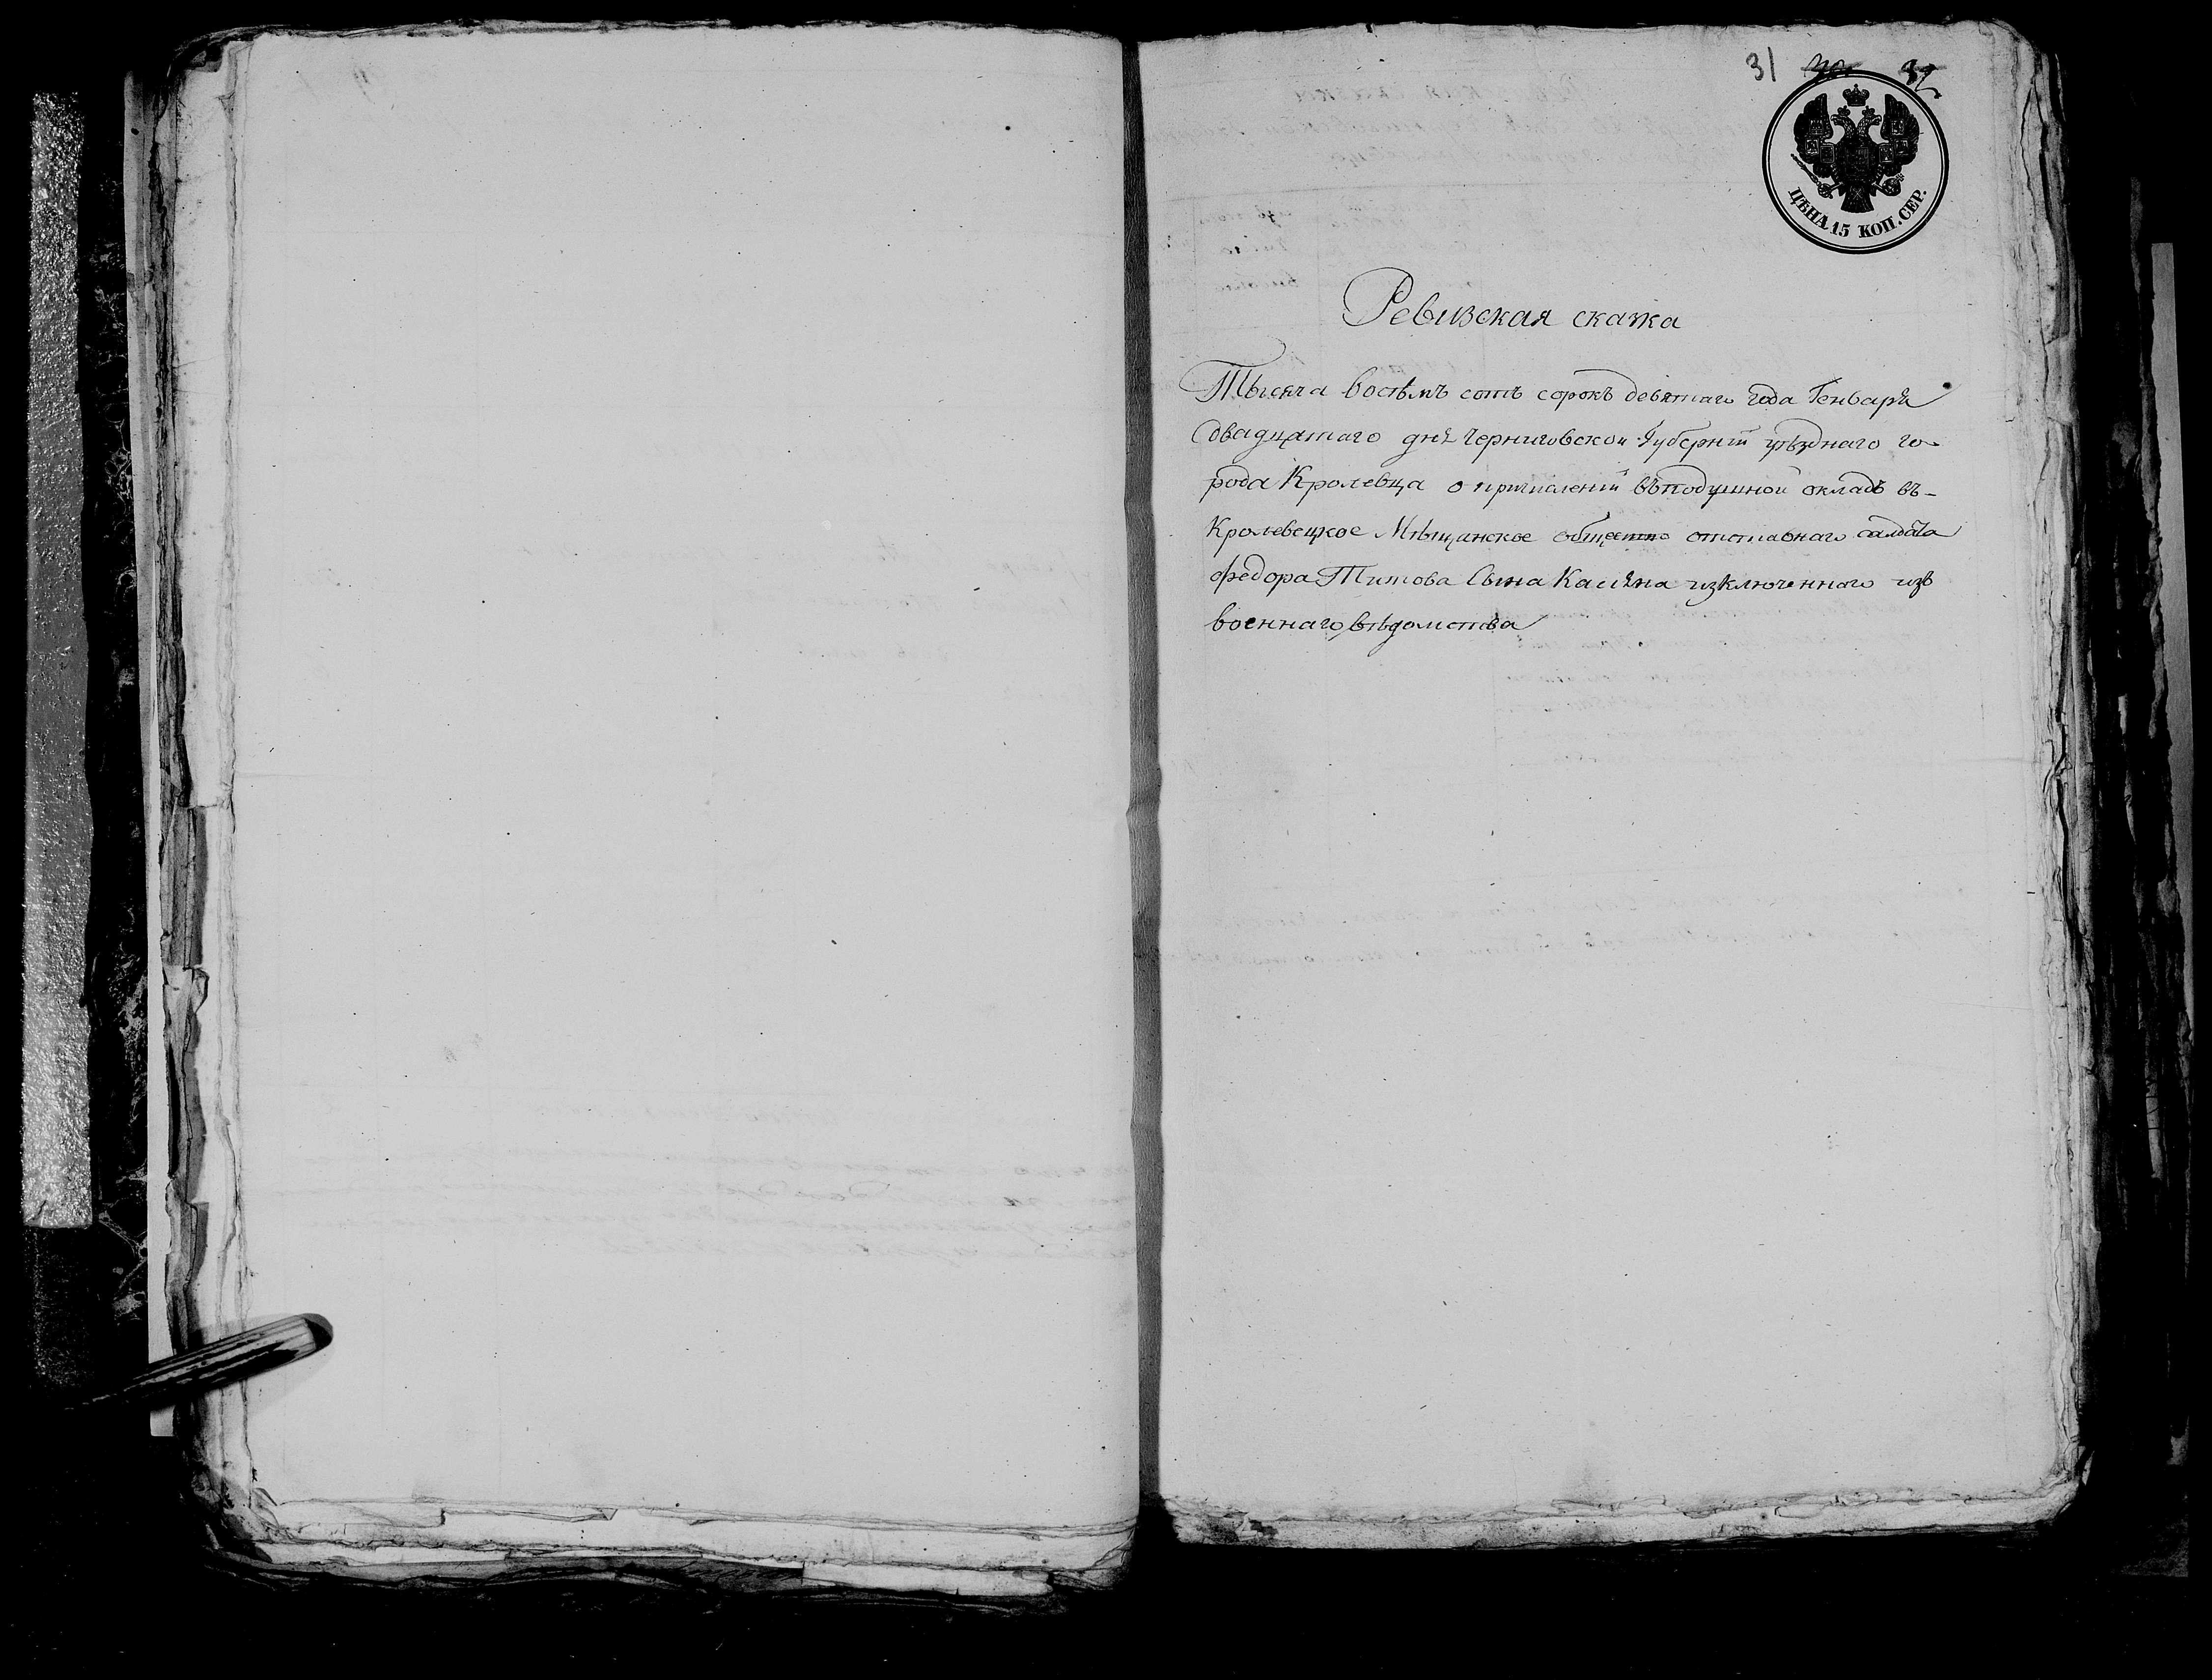 31 30 32
ЦѢНА 15 КОП. СЕР.
Ревизская скажа
Тысяча восѣмъ сотъ сорокъ девятаго года Генваря
двадцатаго дня Черниговской Губерніи уѣзднаго го-
рода Кролевца о причисленіи въ подушной окладъ въ-
Кролевецкое Мѣщанское общество отставнаго салдата
Федора Титова Сына Касяна изключеннаго изъ
военнаго вѣдомства